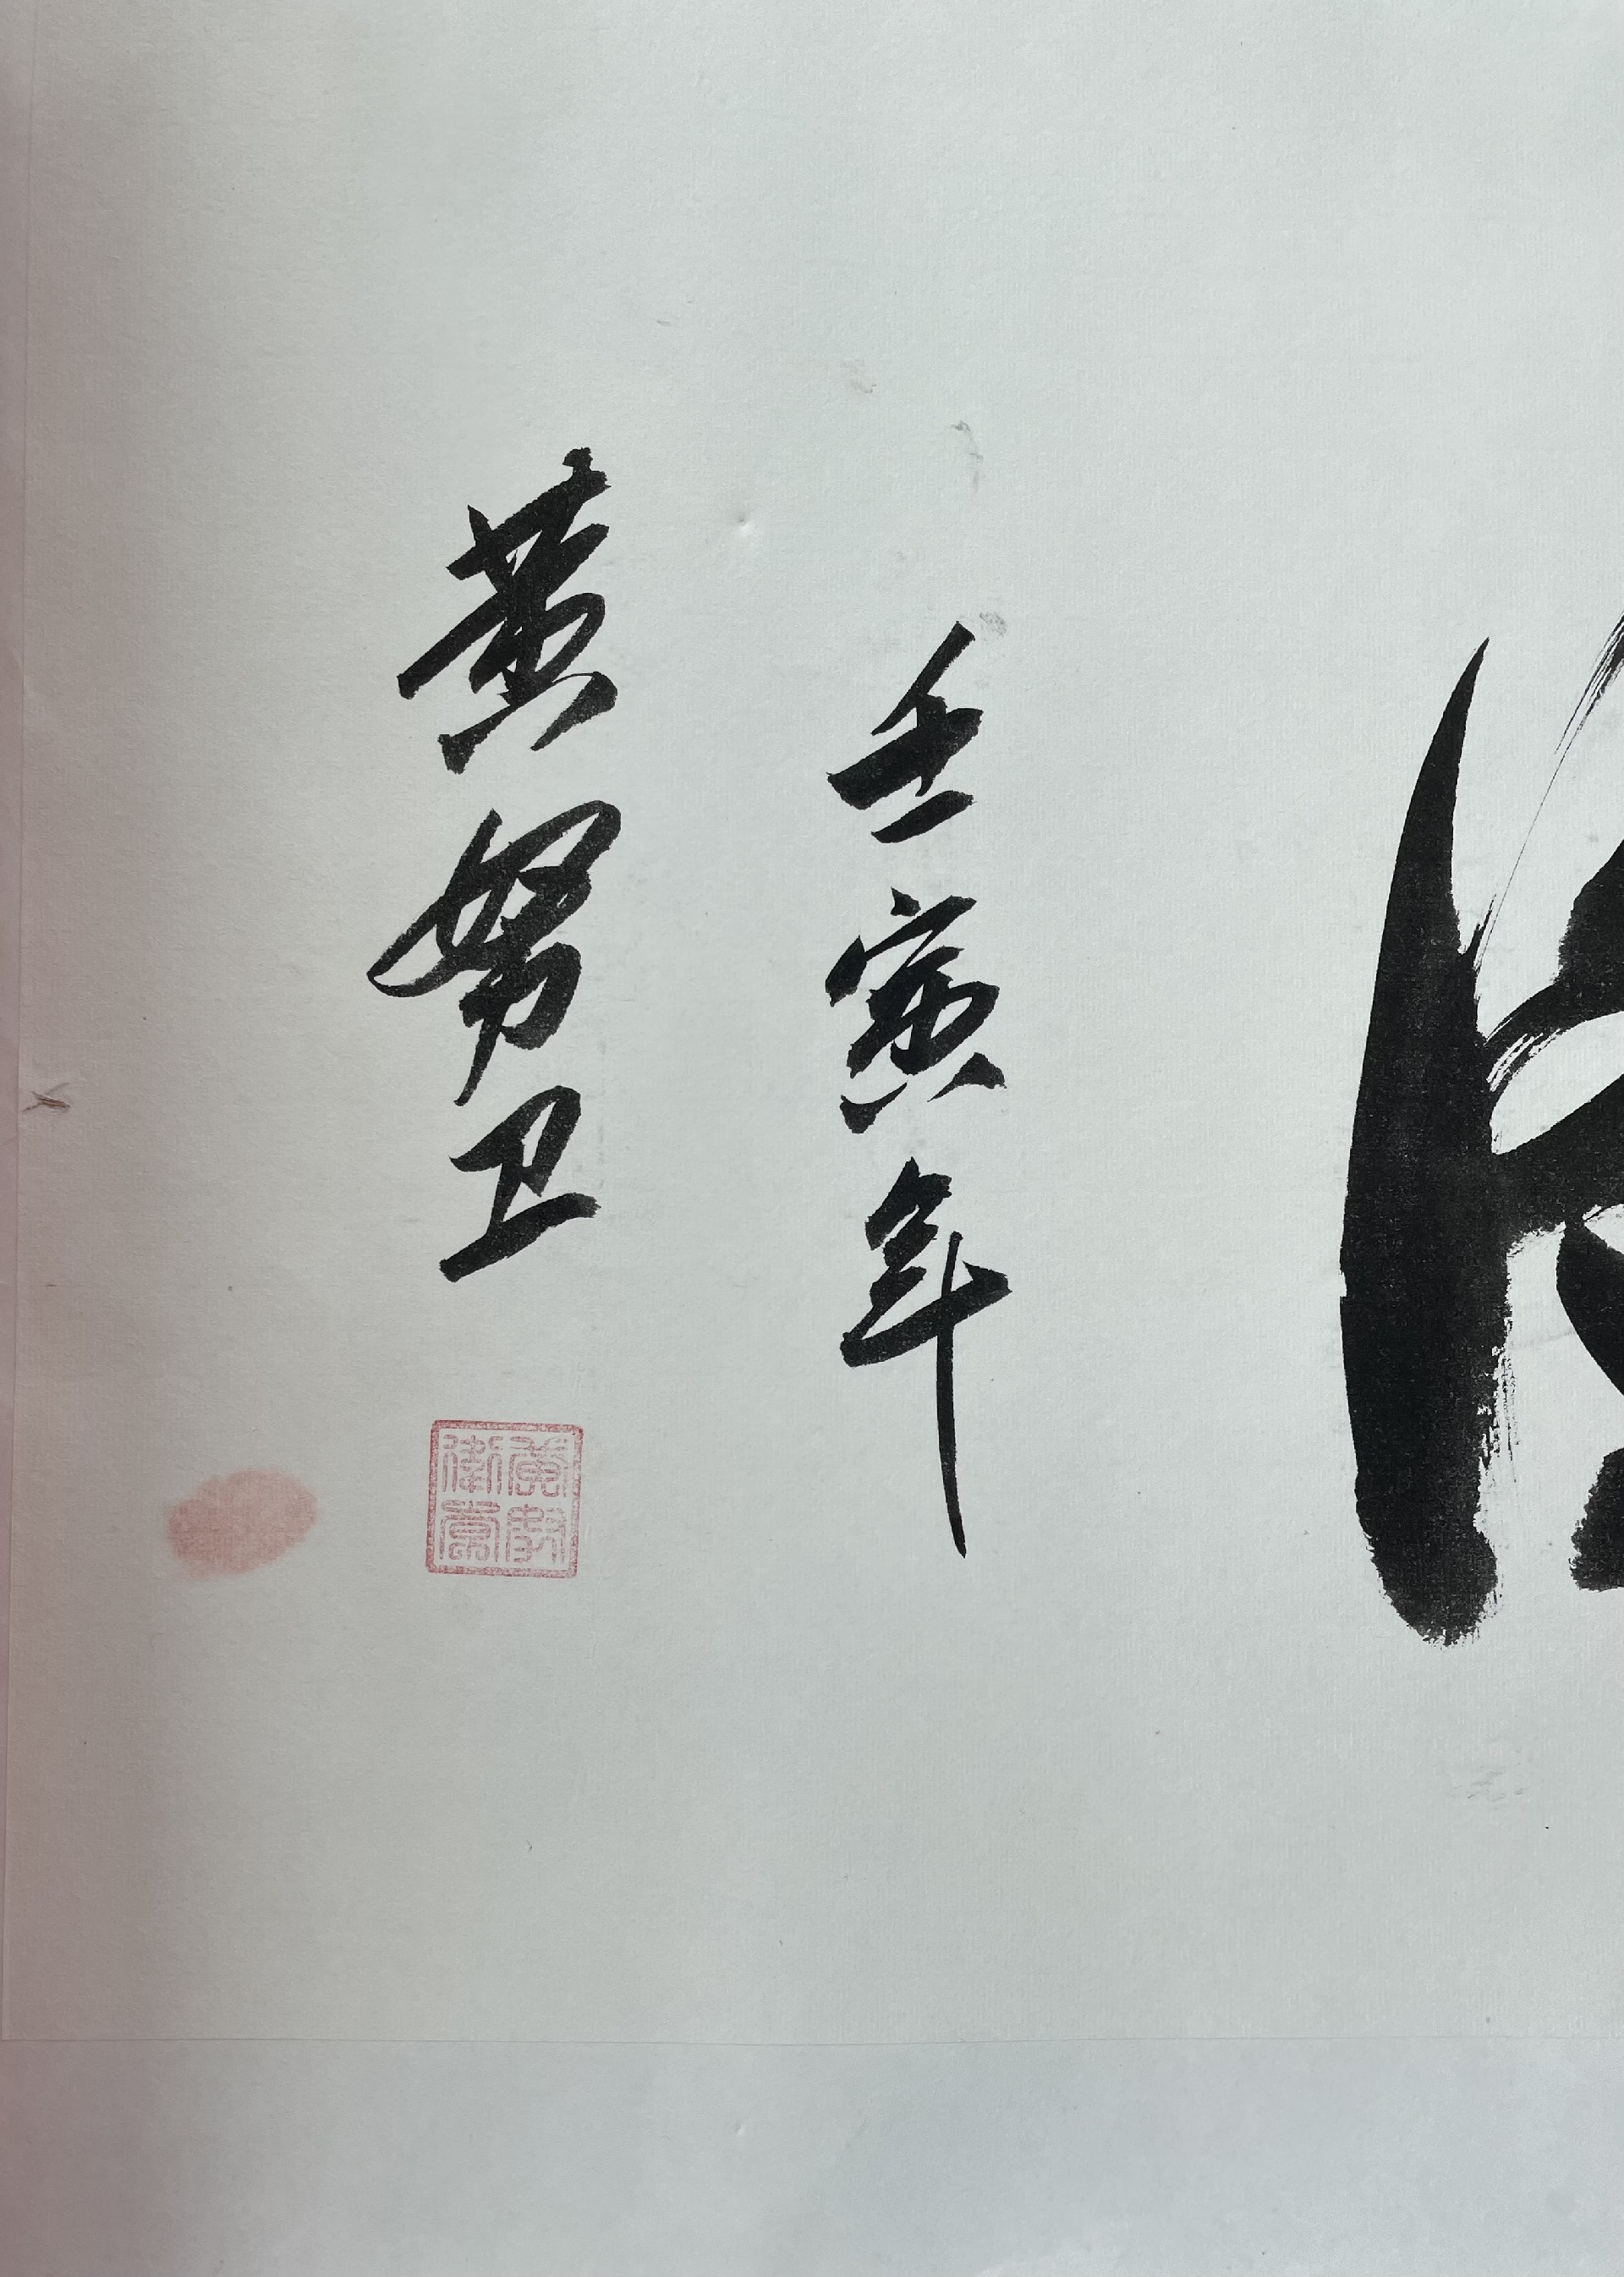 壬寅年
黄努卫